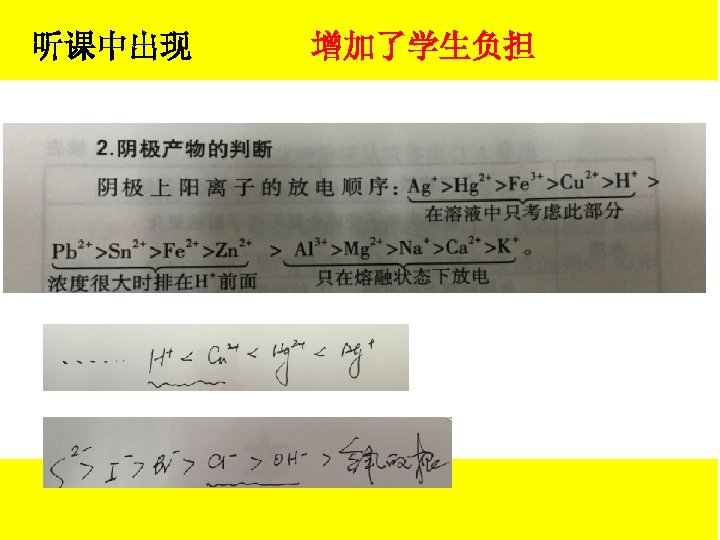 听课中出现 增加了学生负担
2.阴极产物的判断
阴极上阳离子的放电顺序：Ag⁺>Hg²⁺>Fe³⁺>Cu²⁺>H⁺>
在溶液中只考虑此部分
Pb²⁺>Sn²⁺>Fe²⁺>Zn²⁺>Al³⁺>Mg²⁺>Na⁺>Ca²⁺>K⁺。
浓度很大时排在H⁺前面 只在熔融状态下放电
...... H⁺<Cu²⁺<Hg²⁺<Ag⁺
S²⁻>I⁻>Br⁻>Cl⁻>OH⁻>含氧酸根